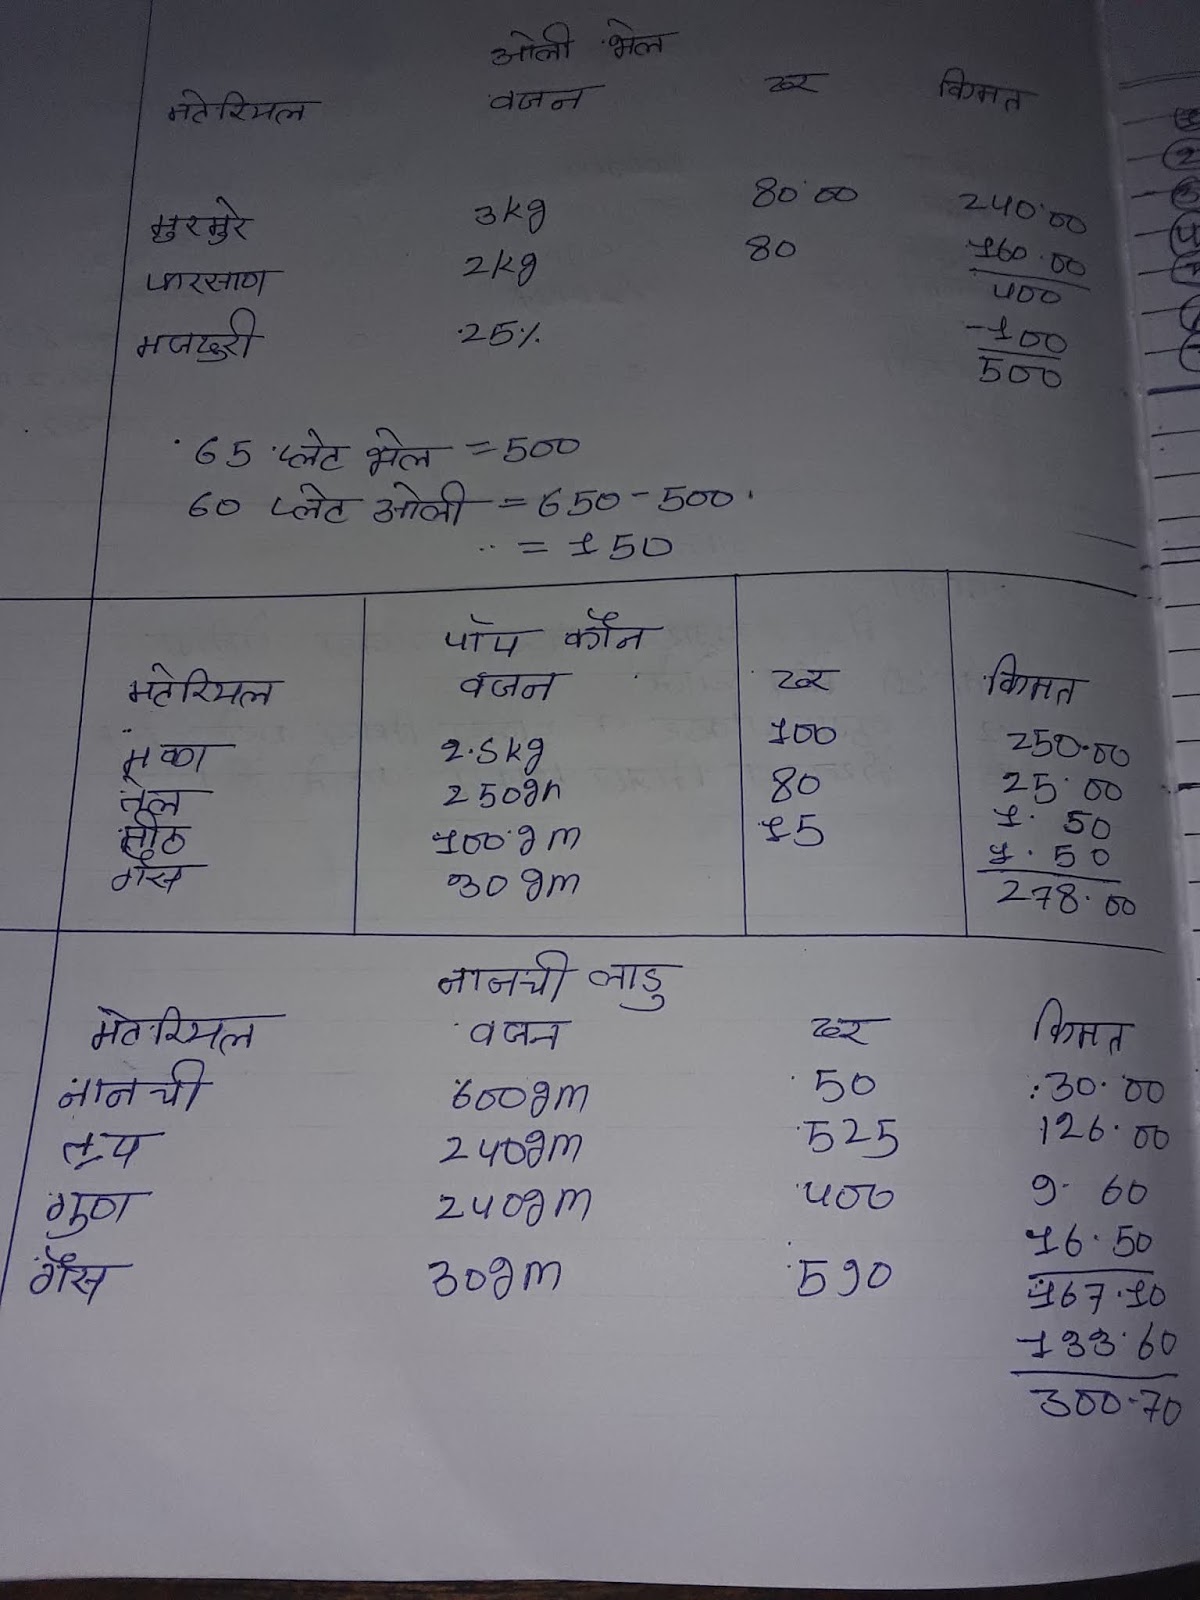 ओली भेल
मटेरियल वजन दर किंमत
मुरमुरे 3kg 80.00 240.00
फारसाण 2kg 80 160.00
400
मजदुरी 25% 100
500
65 प्लेट भेल = 500
60 प्लेट ओली = 650 - 500
= 150
पॉप कॉन
मटेरियल वजन दर किंमत
मका 2.5kg 100 250.00
तेल 250gm 80 25.00
मीठ 100gm 15 1.50
गॅस 30gm 1.50
278.00
नाचनी लाडु
मटेरियल वजन दर किंमत
600gm 50 30.00
तूप 240gm 525 126.00
गुळ 240gm 400 9.60
16.50
गॅस 30gm 590 167.10
133.60
300.70